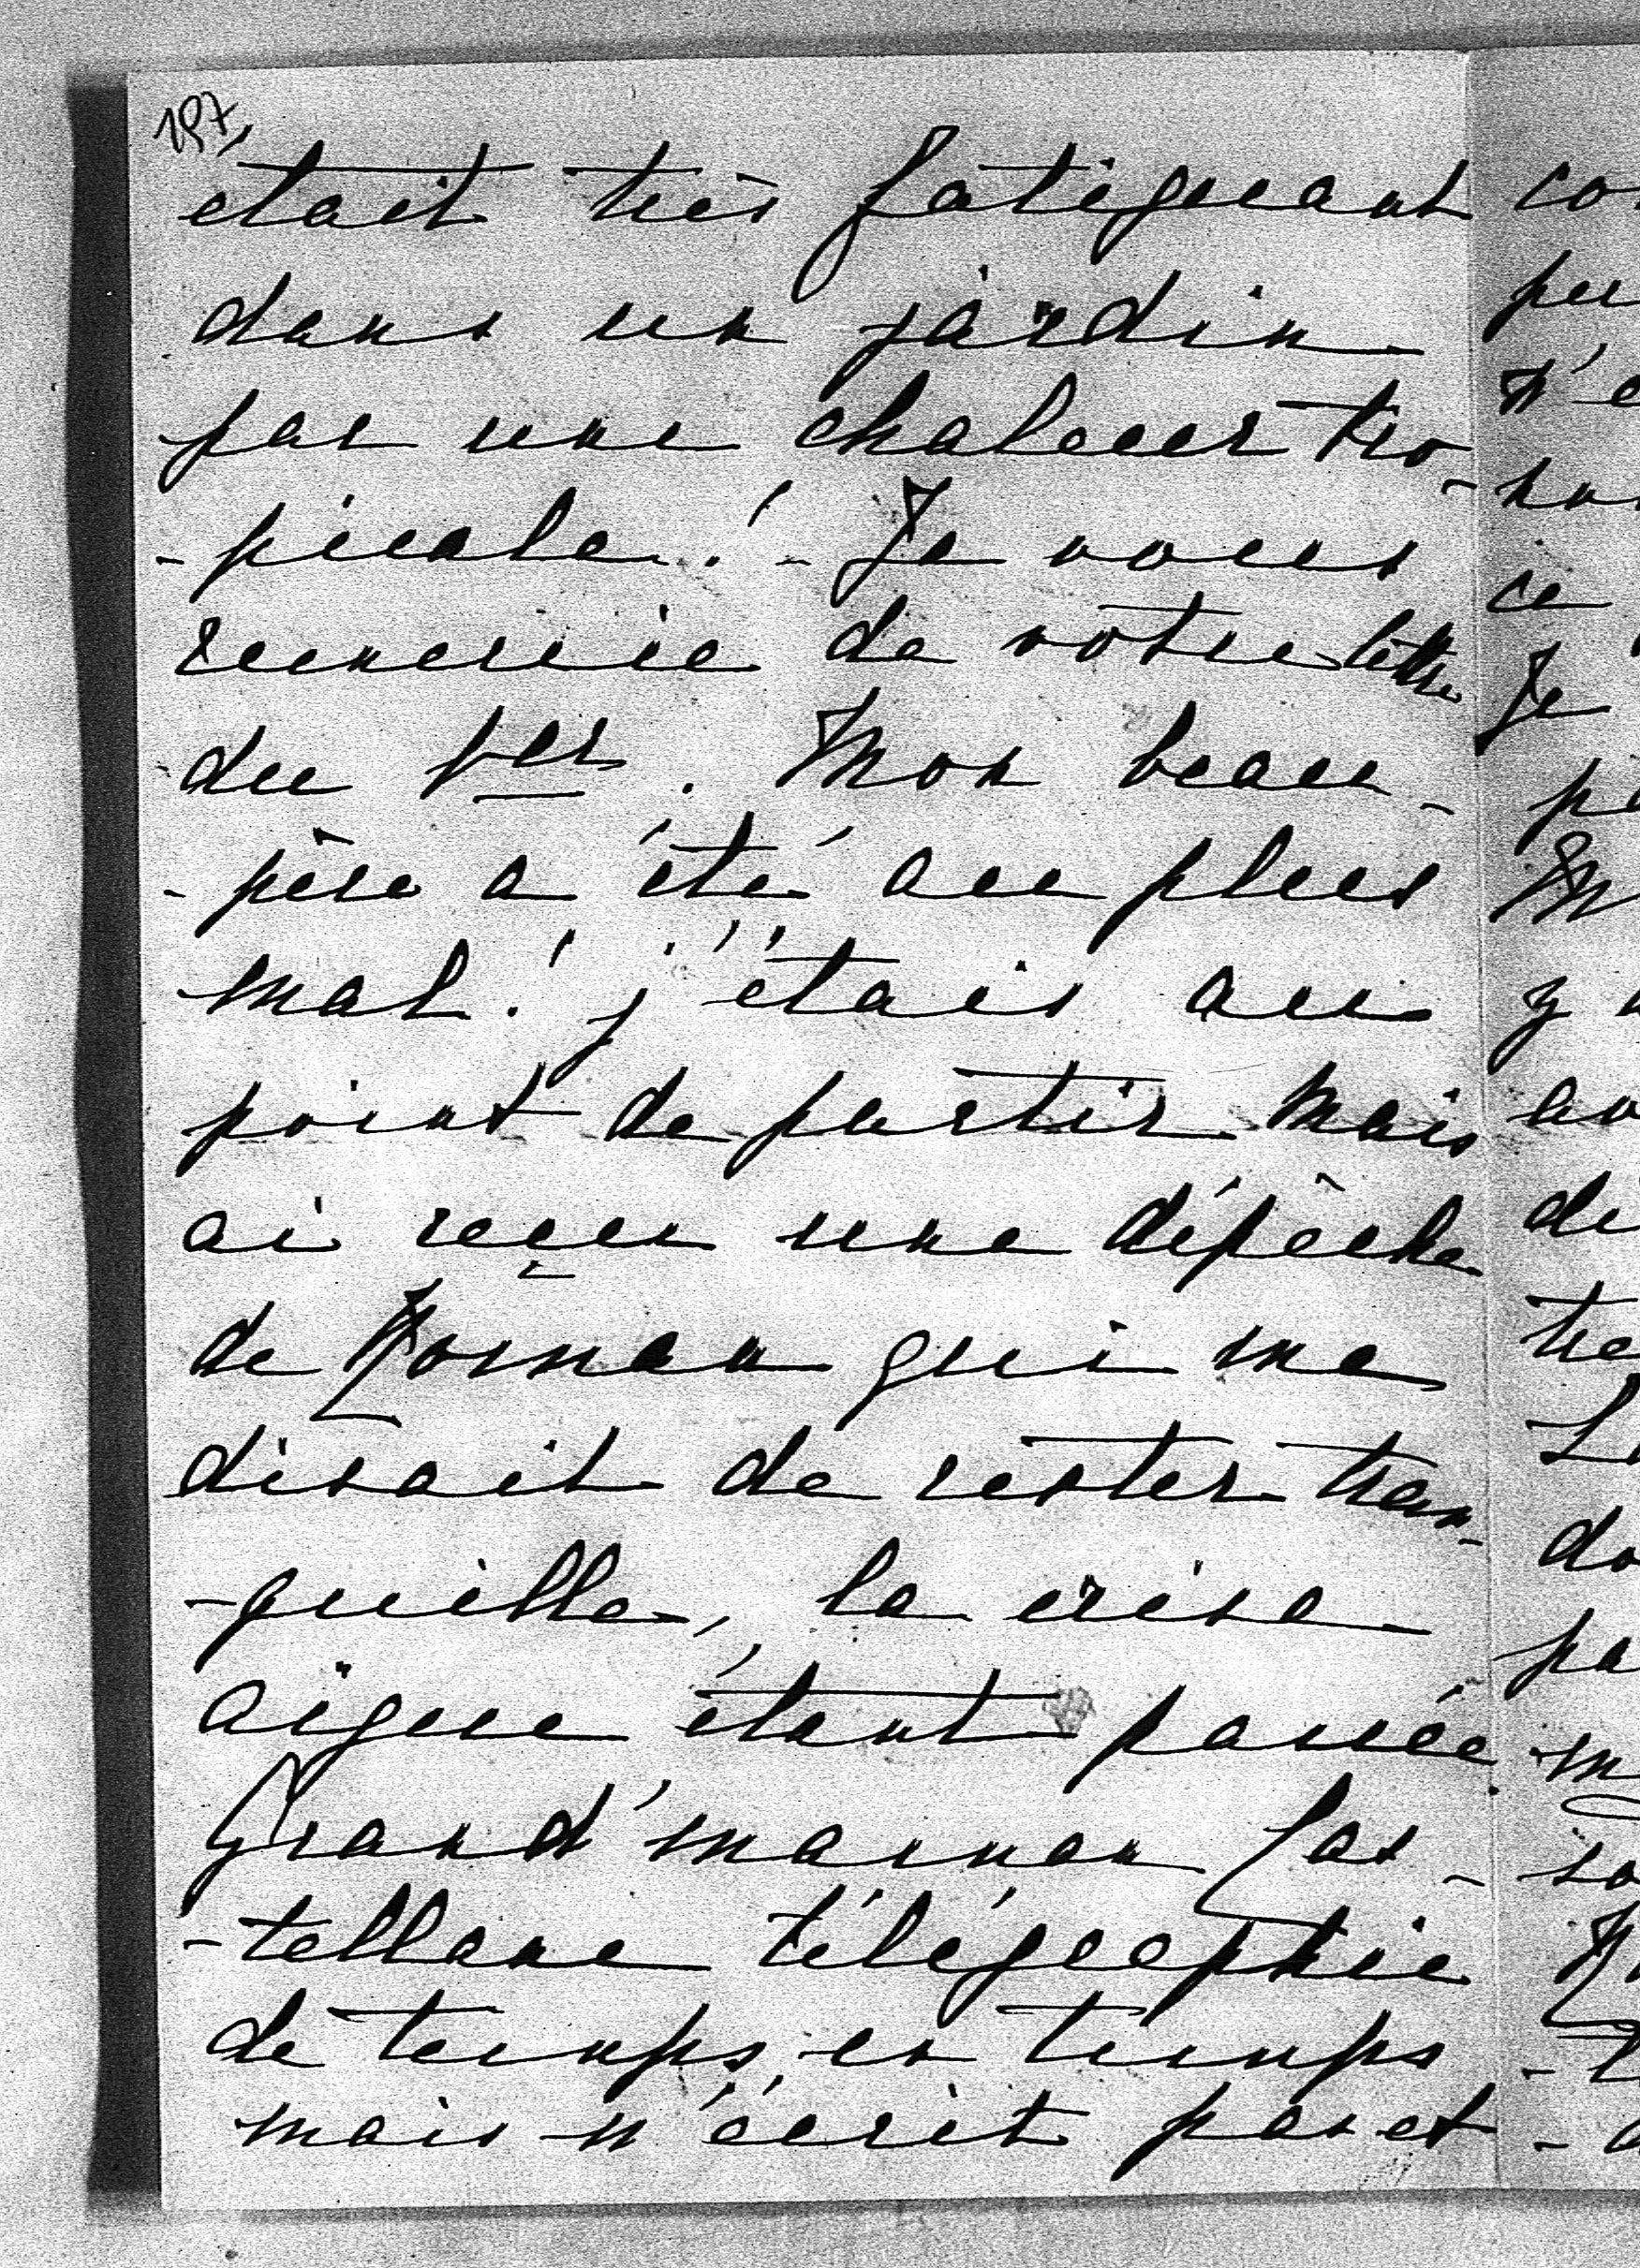 197
était très fatiguant
dans un jardin
par une chaleur tro-
-picale! - Je vous
remercie de votre lettre
du 1er. Mon beau-
-père a été au plus
mal! j'étais au
point de partir mais
ai reçu une dépêche
de qui me
disait de rester tran-
-quille, la crise
aïgue étant passée.
Grand'maman Cas-
-tellane télégraphie
de temps en temps
mais n'écrit pas et